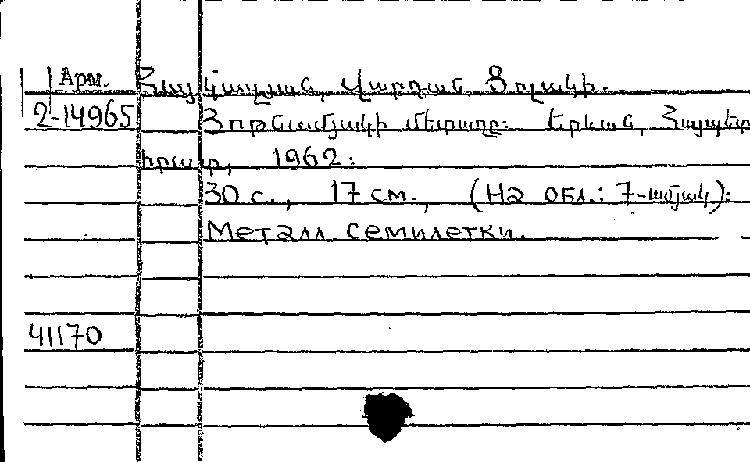 Арм. Հայկազյան, Վարդան Ցոլակի.
2-14965 Յոթնամյակի մետաղը: Երևան, Հայպետ
հրատ, 1962:
30 с., 17 см., (На обл.: 7-ամյակ):
Металл семилетки.
41170